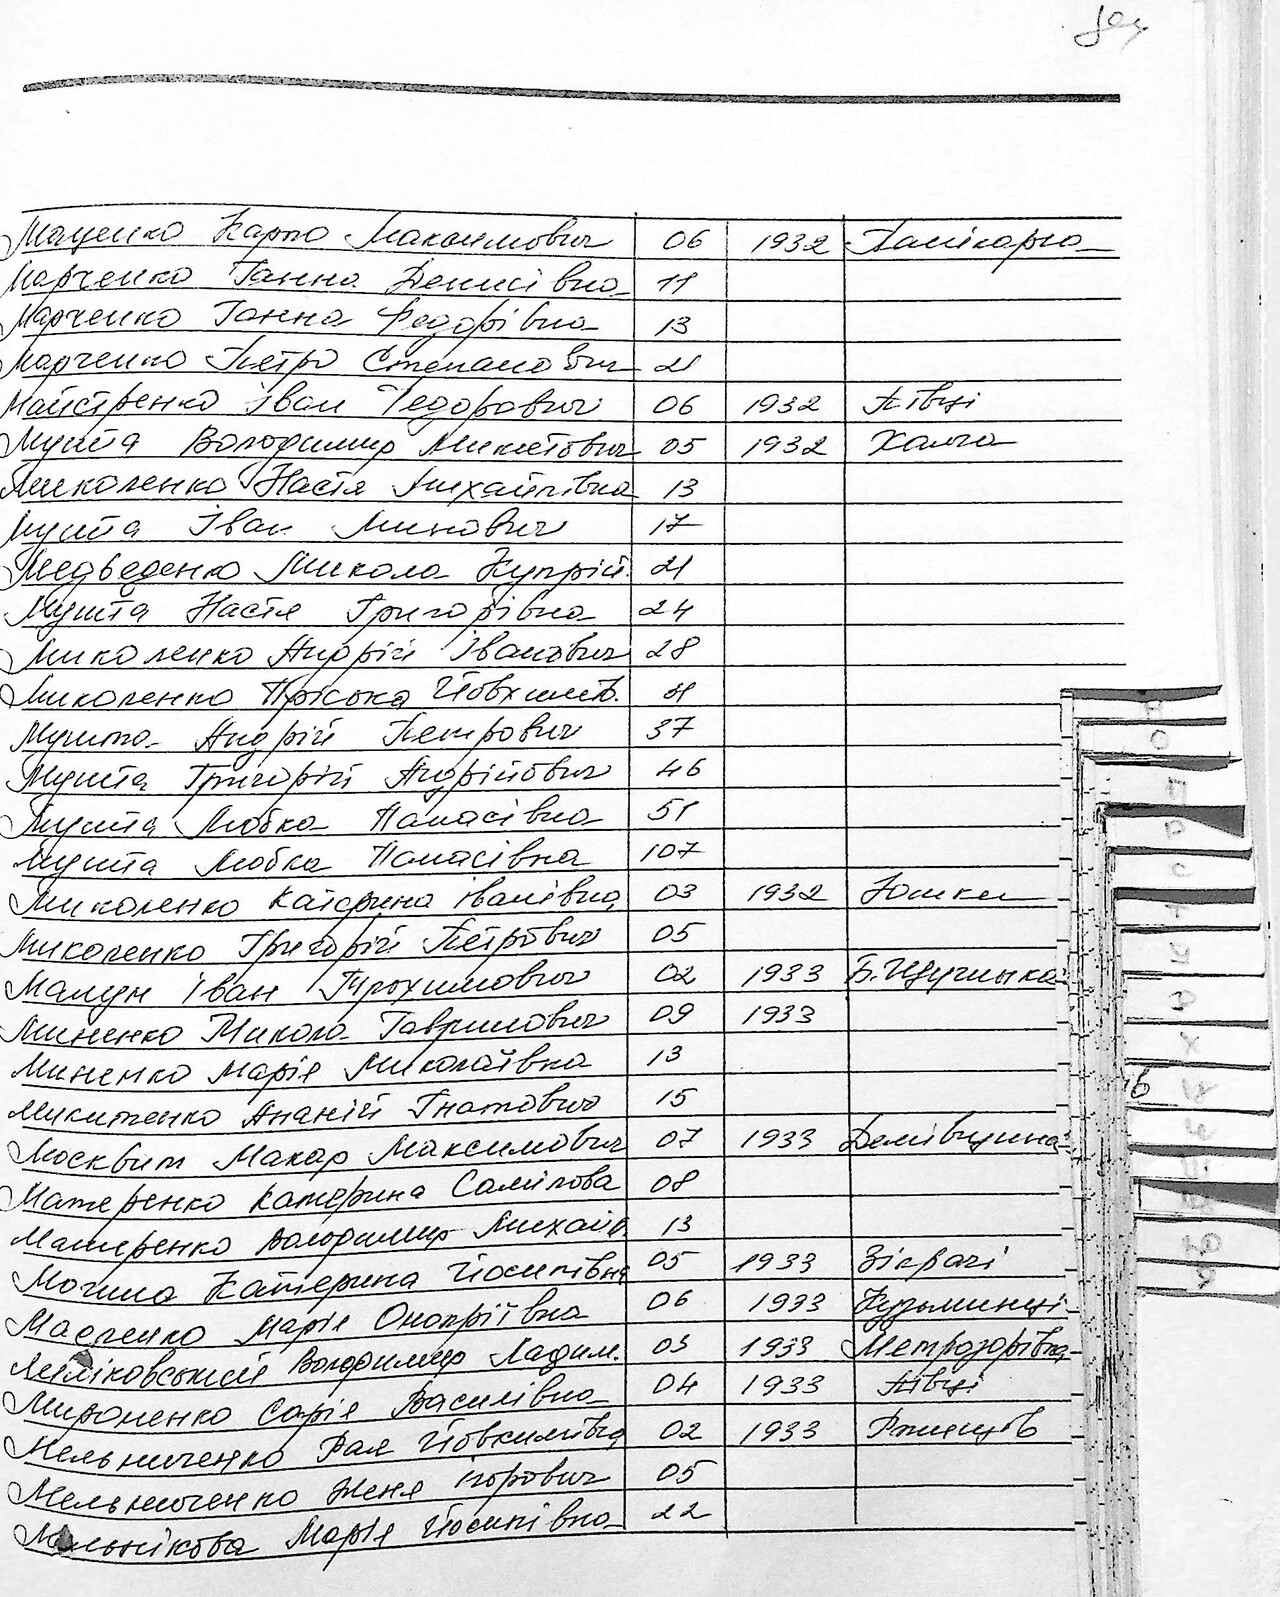 Маценко Карпо Максимович 06 1932 Панікарча
Марченко Ганна Денисівна 11
Марченко Ганна Федорівна 13
Марченко Петро Степанович 21
Майстренко Іван Федорович 06 1932 Півці
Мушта Володимир Микитович 05 1932 Халча
Миколенко Настя Михайлівна 13
Мушта Іван Минович 17
Медвєденко Микола Купрій. 21
Мушта Настя Григорівна 24
Миколенко Андрій Іванович 28
Миколенко Пріська Йовхимів.
Мушта Андрій Петрович 37
Мушта Григорій Андрійович 46
Мушта Любка Панасівна 51
Мушта Любка Панасівна 107
Миколенко Катерина Іванівна 03 1932 Юшки
Миколенко Григорій Петрович 05
Малун Іван Трохимович 02 1933 Б. Щучинка
Миненко Микола Гаврилович 09 1933
Миненко Марія Миколаївна 13
Микитенко Ананій Гнатович 15
Москвич Макар Максимович 07 1933 Демівщина
Матеренко Катерина Самілова 08
Матеренко Володимир Михайл. 13
Могила Катерина Йосипівна 05 1933 Зікрачі
Масленко Марія Онопріївна 06 1933 Кузьминці
Володимир Ладим. 03 1933 Метрозорівка
Мироненко Сарія Василівна 04 1933 Півці
Мельниченко Рая Йовхимівна 02 1933 Ржищів
Мельниченко Женя Ігорович 05
Мельнікова Марія Йосипівна 22